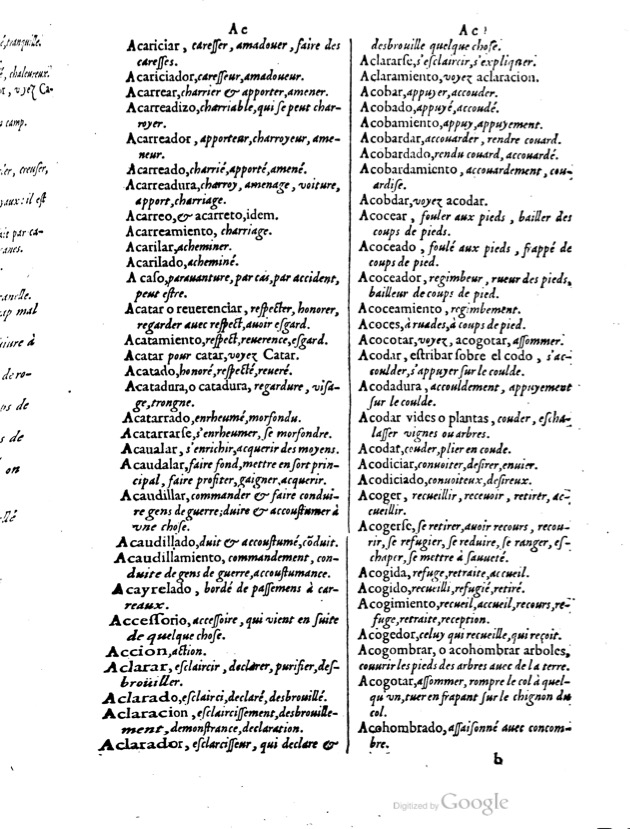 , tranquille.
, chaleureux.
Ca-
camp.
creuser,
: il est
par ca-
mal
à
de
de
on
Ac
Acariciar, caresser, amadouer, faire des
caresses.
Acariciador, caresseur, amadoueur.
Acarrear, charrier & apporter, amener.
Acarreadizo, charriable, qui se peut char-
royer.
Acarreador, apporteur, charroyeur, ame-
neur.
Acarreado, charrié, apporté, amené.
Acarreadura, charroy, amenage, voiture,
apport, charriage.
Acarreo, & acarreto, idem.
Acarreamiento, charriage.
Acarilar, acheminer.
Acarilado, acheminé.
A caso, parauanture, par cas, par accident,
peut estre.
Acatar o reuerenciar, respecter, honorer,
regarder auec respect, auoir esgard.
Acatamiento, respect, reuerence, esgard.
Acatar pour catar, voyez Catar.
Acatado, honoré, respecté, reueré.
Acatadura, o catadura, regardure, visa-
ge, trongne.
Acatarrado, enrheumé, morfondu.
Acatarrarse, s'enrheumer, se morfondre.
Acaualar, s'enrichir, acquerir des moyens.
Acaudalar, faire fond, mettre en sort prin-
cipal, faire profiter, gaigner, acquerir.
Acaudillar, commander & faire condui-
re gens de guerre; duire & accoustumer à
vne chose.
Acaudillado, duit & accoustumé, cōduit.
Acaudillamiento, commandement, con-
duite de gens de guerre, accoustumance.
Acayrelado, bordé de passemens à car-
reaux.
Accessorio, accessoire, qui vient en suite
de quelque chose.
Accion, action.
Aclarar, esclaircir, declarer, purifier, des-
broüiller.
Aclarado, esclairci, declaré, desbrouillé.
Aclaracion, esclaircissement, desbrouille-
ment, demonstrance, declaration.
Aclarador, esclarcisseur, qui declare &
Ac
desbrouille quelque chose.
Aclararse, s'esclaircir, s'expliquer.
Aclaramiento, voyez aclaracion.
Acobar, appuyer, accouder.
Acobado, appuyé, accoudé.
Acobamiento, appuy, appuyement.
Acobardar, accouarder, rendre couard.
Acobardado, rendu couard, accouardé.
Acobardamiento, accouardement, cou-
ardise.
Acobdar, voyez acodar.
Acocear, fouler aux pieds, bailler des
coups de pieds.
Acoceado, foulé aux pieds, frappé de
coups de pied.
Acoceador, regimbeur, rueur des pieds,
bailleur de coups de pied.
Acoceamiento, regimbement.
Acoces, à ruades, à coups de pied.
Acocotar, voyez, acogotar, assommer.
Acodar, estribar sobre el codo, s'ac-
coulder, s'appuyer sur le coulde.
Acodadura, accouldement, appuyement
sur le coulde.
Acodar vides o plantas, couder, escha-
lasser vignes ou arbres.
Acodat, couder, plier en coude.
Acodiciar, conuoiter, desirer, enuier.
Acodiciado, conuoiteux, desireux.
Acoger, recueillir, receuoir, retirer, ac-
cueillir.
Acogerse, se retirer, auoir recours, recou-
rir, se refugier, se reduire, se ranger, es-
chaper, se mettre à sauueté.
Acogida, refuge, retraite, accueil.
Acogido, recueilli, refugié, retiré.
Acogimiento, recueil, accueil, recours, re-
fuge, retraite, reception.
Acogedor, celuy qui recueille, qui reçoit.
Acogombrar, o acohombrar arboles,
couurir les pieds des arbres auec de la terre.
Acogotar, assommer, rompre le col à quel-
qu'vn, tuer en frapant sur le chignon du
col.
Acohombrado, assaisonné auec concom-
bre.
b
Digitized by Google